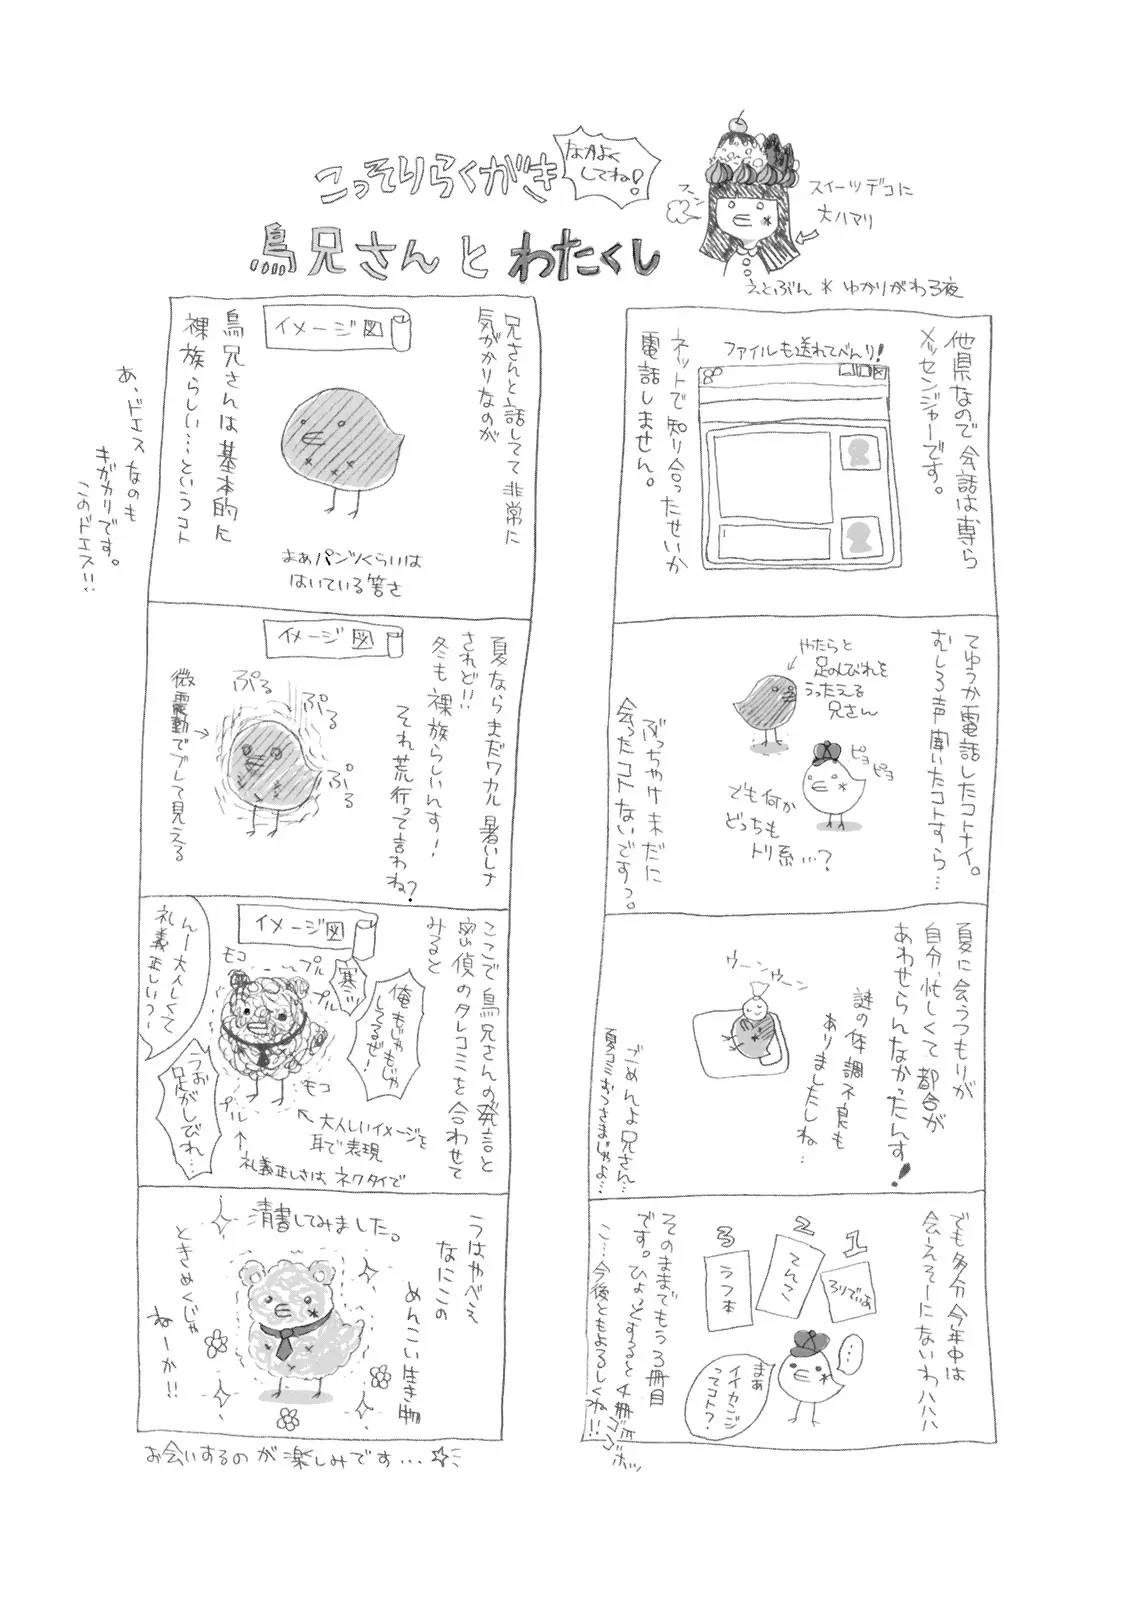 こっそりらくがき
なかよく
してね！
鳥兄さんとわたくし
フーン
スイーツデコに
大ハマリ
えとぶん＊ゆかりがわる夜
他県なので会話は専ら
メッセンジャーです。
ファイルも送れてべんり！
ネットで知り合ったせいか
電話しません。
てゆうか電話したコトナイ。
むしろ声聞いたコトすら…
やたらと
足のしびれを
うったえる
兄さん
ピヨ
ピヨ
でも何か
どっちも
トリ系…？
ぶっちゃけ未だに
会ったコトないですっ。
夏に会うつもりが
自分、忙しくて都合が
あわせらんなかったんす！
ウーンウーン
謎の体調不良も
ありましたしね…
ごめんよ兄さん…
夏コミおつさまじゃよ…
でも多分今年中は
会ーえそーにないわハハハ
1
2
3
ろりでぃよ
てんごく
うつ本
…
まぁ
イイカンジ
ってコト？
そのままでもう3冊目
です。ひょっとすると4冊
こ…今後ともよろしくね!!
ゴゴボッ
兄さんと話してて非常に
気がかりなのが
イメージ図
鳥兄さんは基本的に
裸族らしい…というコト
まぁパンツくらいは
はいている筈さ
あ、ドエスなのも
キガカリです。
このドエス!!
夏ならまだワカル暑いしさ
されど!!
冬も裸族らしいんす！
それ荒行って言わね？
イメージ図
ぷる
ぷる
ぷる
微震動でブレて見える
ここで鳥兄さんの発言と
密偵のタレコミを合わせて
みると
イメージ図
モコ
プル
プル
寒ッ
俺もじゃもじゃ
してるぜ！
んー大人しくて
礼義正しい？
うお
足がしびれ…
モコ
プル
大人しいイメージを
耳で表現
礼義正しさは、ネクタイで
うはやべえ
なにこの
めんこい生き物
清書してみました。
ときめくじゃ
ねーか!!
お会いするのが楽しみです…☆